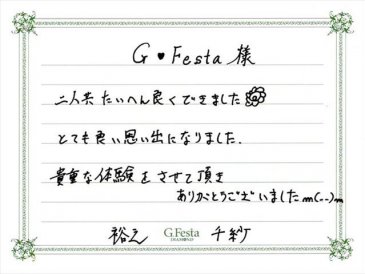 G♥Festa 様
二人共 たいへん良くできました
とても良い思い出になりました.
貴重な体験をさせて頂き
ありがとうございましたm(--)m
G.Festa
DIAMOND